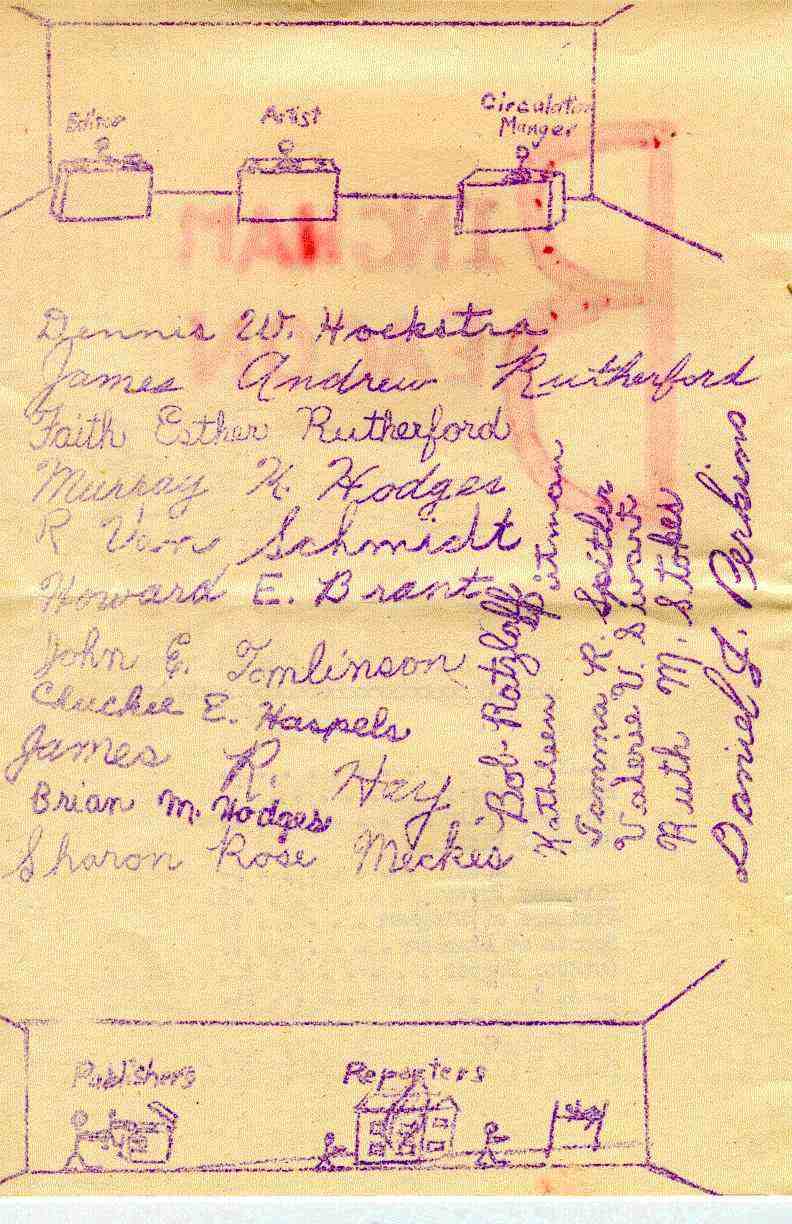 Editor
Artist
Circulation
Manger
Dennis W. Hoekstra
James Andrew Rutherford
Faith Esther Rutherford
Murray K. Hodges
R Van Schmidt
Howard E. Brant
John E. Tomlinson
Chuckie E. Haspels
James R. Hay
Brian M. Hodges
Sharon Rose Meckes
Bob Ratzloff
Kathleen Pitman
Tamma R. Spitler
Valerie V. Swart
Ruth M. Stokes
Daniel J. Perkins
Publishers
Reporters
INGHAM